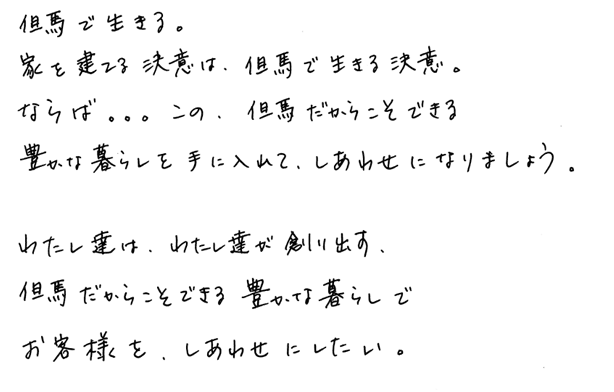 但馬で生きる。
家を建てる決意は、但馬で生きる決意。
ならば。。。この、但馬だからこそできる
豊かな暮らしを手に入れて、しあわせになりましょう。
わたし達は、わたし達が創り出す、
但馬だからこそできる豊かな暮らしで
お客様を、しあわせにしたい。